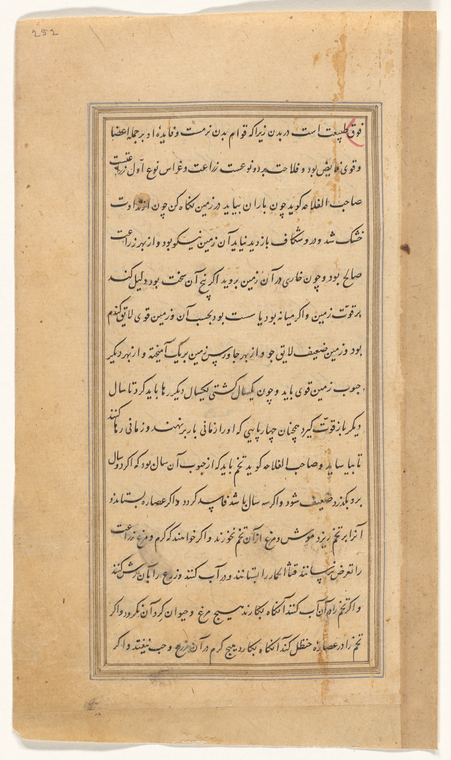 252
قوت طبیعت است در بدن زیراکه قوام بدن بدوست و فایده او بر جمله اعضا
و قوی فایض بود و فلاحت بر دو نوعست زراعت و غراس نوع اول زراعت
صاحب الفلاحه کوید چون باران بیاید در زمین نکاه کن چون از نداوت
خشک شد و درو شکاف بازدید نیاید آن زمین نیکو بود و از بهر زراعت
صالح بود و چون خاری در آن زمین بروید اکر بیخ آن سخت بود دلیل کند
بر قوت زمین و اکر میانه بود یا سست بود بحسب آن و زمین قوی لایق کندم
بود و زمین ضعیف لایق جو و از بهر جاورس زمین بریک آمیخته و از بهر دیکر
حبوب زمین قوی باید و چون یکسال کشتی یکسال دیکر رها باید کرد تا سال
دیکر باز قوت کیرد همچنان چهارپایی که او را زمانی بار برنهند و زمانی رها کنند
تا بیاساید و صاحب الفلاحه کوید تخم باید که از حبوب آن سال بود که اکر دو سال
برو بکذرد ضعیف شود و اکر سه سال باشد فاسد کردد و اکر عصاره بستانند و
آنرا بر تخم ریزد موش و مرغ از آن تخم نخورند و اکر خواهند که کرم و مرغ زراعت
را تعرض نرسانند قثاء الحمار را بستانند و در آب کنند و زرع را بآن رش کنند
و اکر تخم را در آن آب کنند آنکاه بکارند هیچ مرغ و حیوان کرد آن نکردد و اکر
تخم را در عصاره حنظل کند آنکاه بکارد هیچ کرم در آن زرع و حب نیفتد و اکر